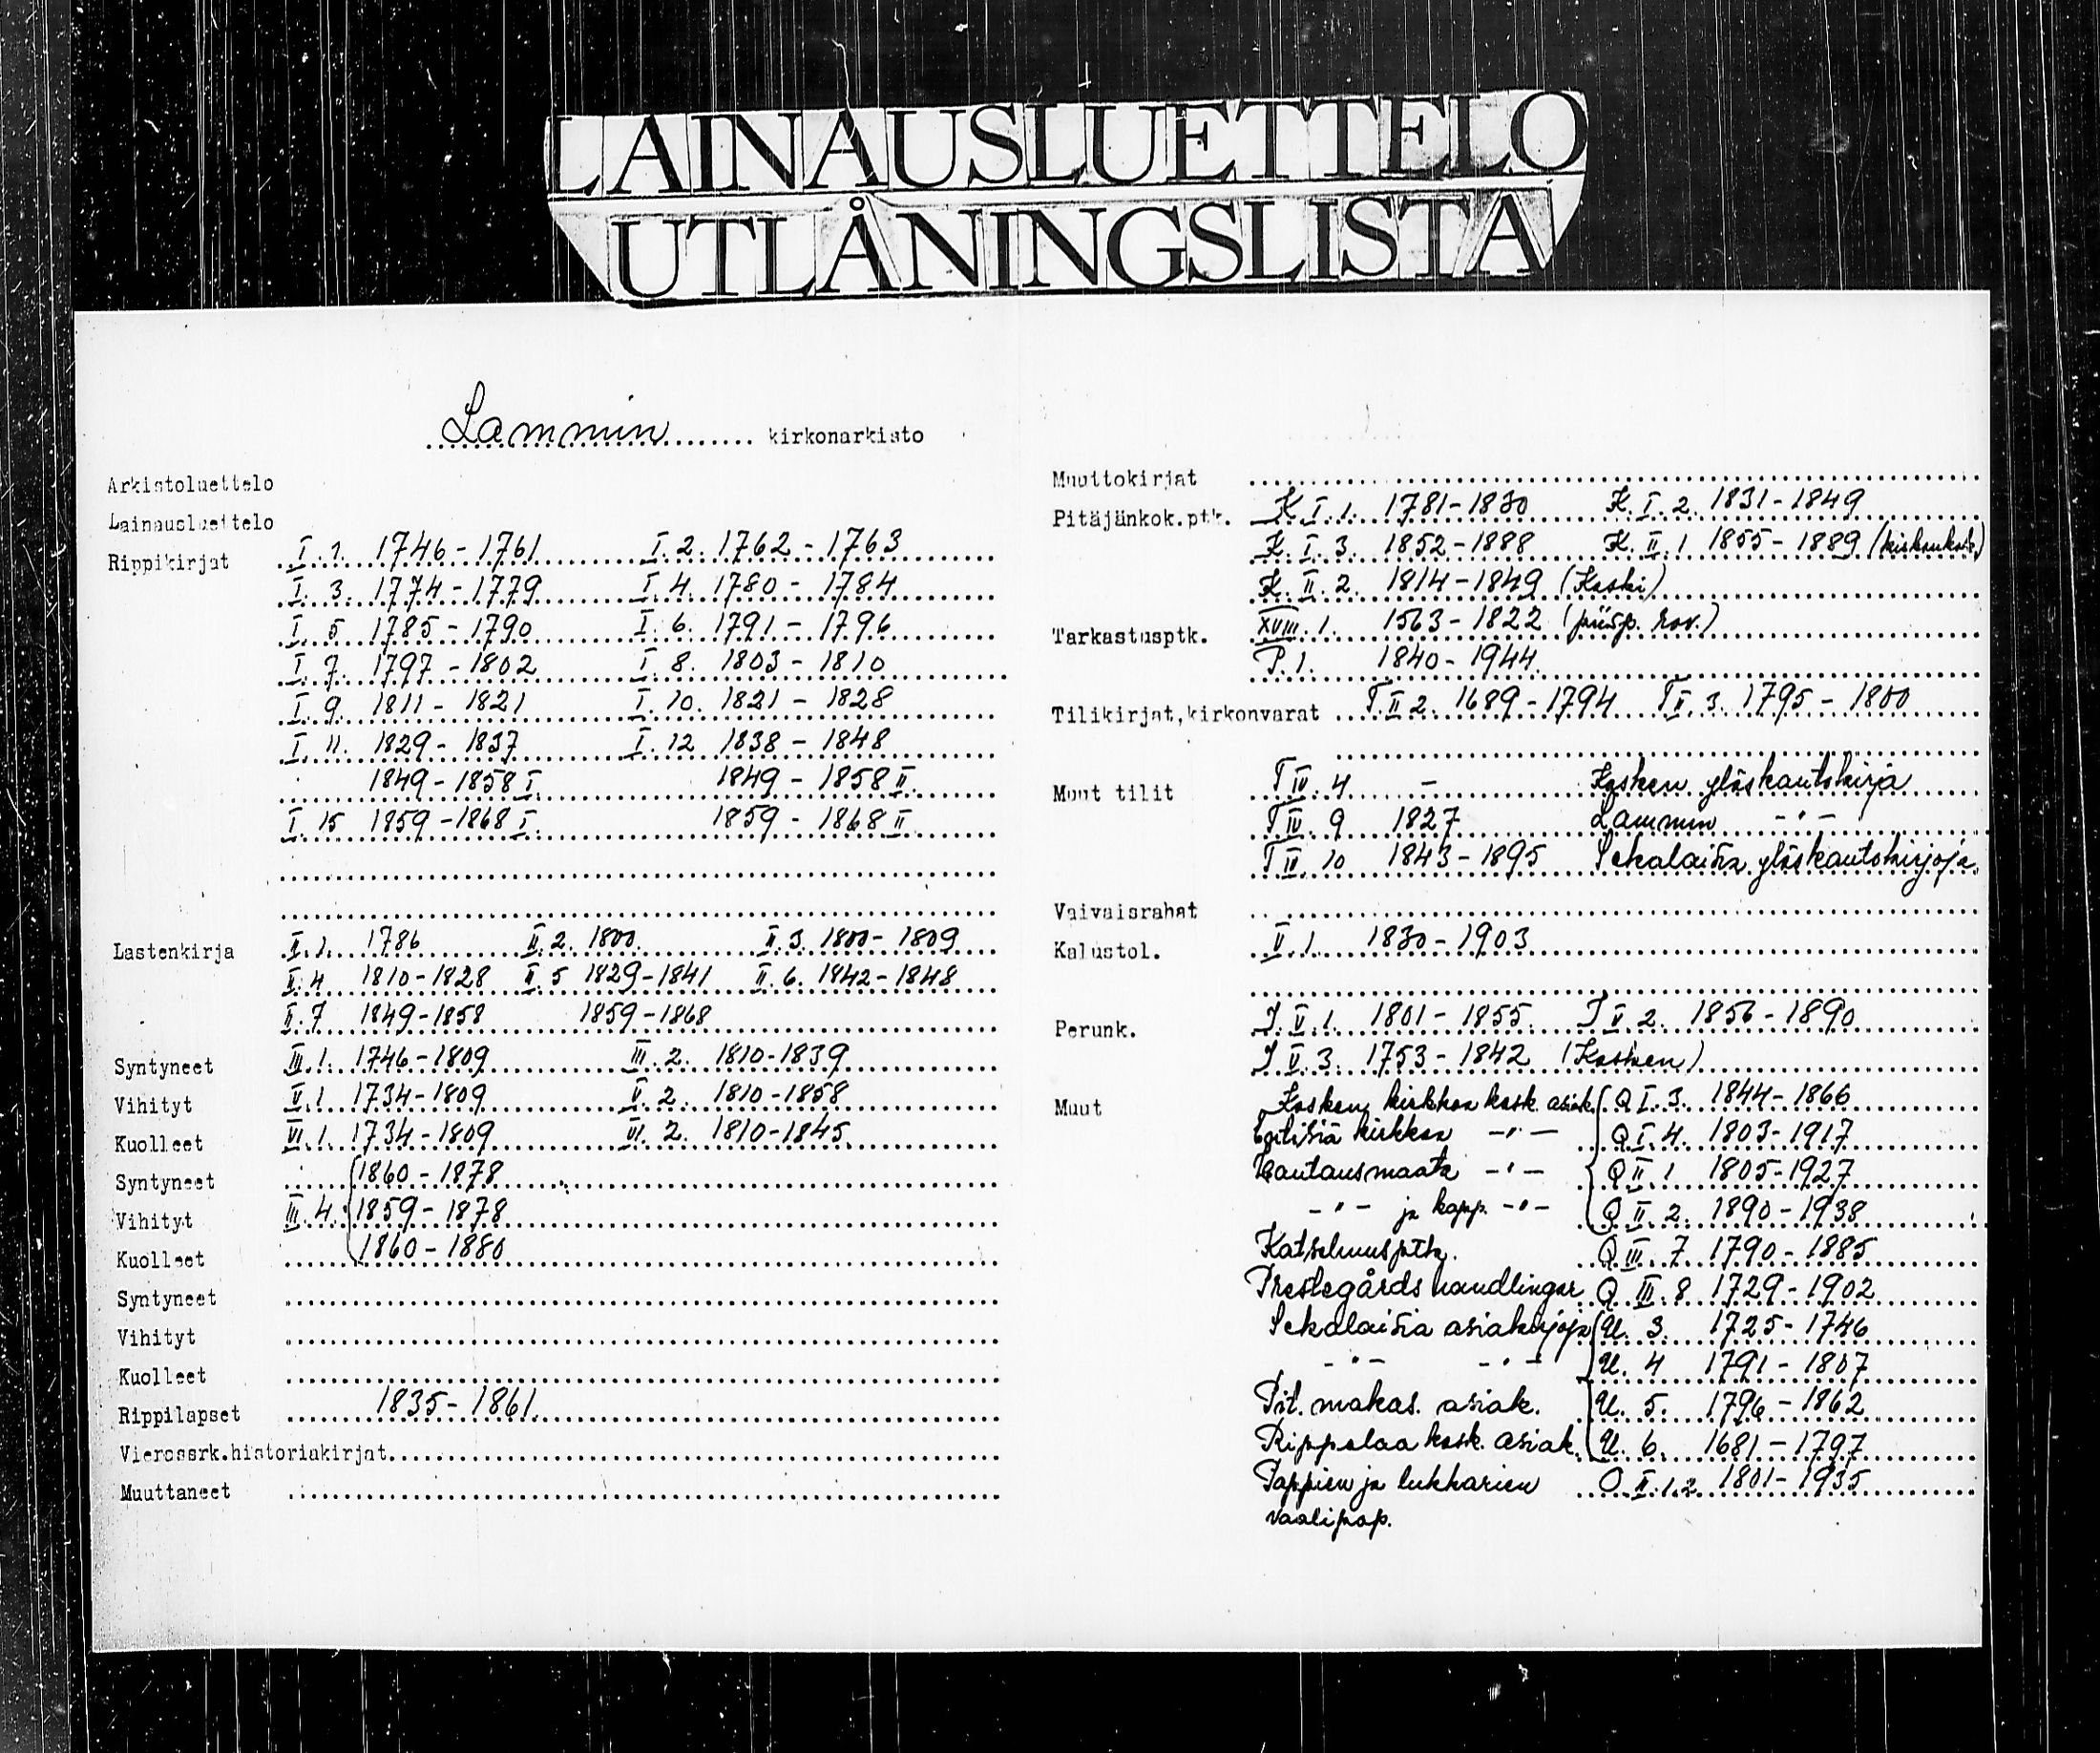 LAINAUSLUETTELO
UTLÅNINGSLISTA
Lammin kirkonarkisto
Arkistoluettelo
Lainausluettelo
Rippikirjat I. 1. 1746-1761 I. 2. 1762-1763
I. 3. 1774-1779 I. 4. 1780-1784
I. 5 1785-1790 I. 6. 1791-1796
I. 7. 1797-1802 I. 8. 1803-1810
I. 9. 1811-1821 I. 10. 1821-1828
I. 11. 1829-1837 I. 12 1838-1848
1849-1858 I. 1849-1858 II.
I. 15 1859-1868 I. 1859-1868 II
Lastenkirja II. 1. 1786 II. 2. 1800. II. 3. 1800-1809
II. 4 1810-1828 II. 5 1829-1841 II. 6. 1842-1848
II. 7 1849-1858 1859-1868
Syntyneet III. 1. 1746-1809 III. 2. 1810-1839
Vihityt V. 1 1734-1809 V. 2. 1810-1858
Kuolleet VI. 1. 1734-1809 VI. 2. 1810-1845
Syntyneet 1860-1878
Vihityt III. 4. 1859-1878
Kuolleet 1860-1880
Syntyneet
Vihityt
Kuolleet
Rippilapset 1835-1861
Vierassrk.historiakirjat
Muuttaneet
Muuttokirjat
Pitäjänkok.ptk. K. I. 1. 1781-1830 K. I. 2. 1831-1849
K. I. 3. 1852-1888 K. II. 1 1855-1889
K. II. 2. 1814-1849 (Koski)
Tarkastusptk. XVIII. 1. 1563-1822 (piisp. rov.)
P. 1. 1840-1944
Tilikirjat,kirkonvarat T. II 2. 1689-1794 T II. 3. 1795-1800
Muut tilit T IV. 4 - Kosken ylöskantokirja
T IV. 9 1827 Lammin -"-
T IV. 10 1843-1895 Sekalaisia ylöskantokirjoja
Vaivaisrahat
Kalustol. II. 1. 1830-1903
Perunk. J. II. 1. 1801-1855 J II 2. 1856-1890
J II 3. 1753-1842 (Kosken)
Muut Kosken kirkkoa kosk. asiak. Q I. 3. 1844-1866
kirkkoa -"- Q I. 4. 1803-1917
Hautausmaata -"- Q II. 1 1805-1927
-"- ja kapp. -"- Q II. 2. 1890-1938
Katselmusptk. Q III. 7 1790-1885
Prestegårds handlingar Q III. 8 1729-1902
Sekalaisia asiakirjoja U. 3. 1725-1746
-"- -"- U. 4 1791-1807
Pit. makas. asiak. U. 5. 1796-1862
kosk. asiak. U. 6. 1681-1797
Pappien ja lukkarien O II. 1.2 1801-1935
vaalipap.